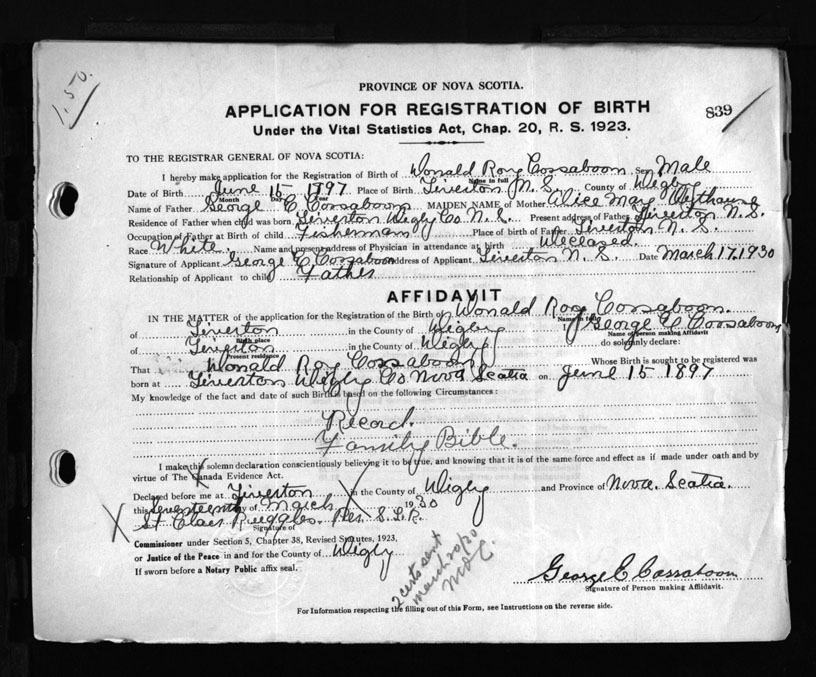 1.50.
PROVINCE OF NOVA SCOTIA.
APPLICATION FOR REGISTRATION OF BIRTH
839
Under the Vital Statistics Act, Chap. 20, R. S. 1923.
TO THE REGISTRAR GENERAL OF NOVA SCOTIA:
I hereby make application for the Registration of Birth of Donald Roy Cossaboom Sex Male
Name in full
Date of Birth June 15 1897 Place of Birth Tiverton N. S. County of Digby
Month Day Year
Name of Father George E Cossaboom MAIDEN NAME of Mother Alice May
Residence of Father when child was born Tiverton Digby Co N. S. Present address of Father Tiverton N. S.
Occupation of Father at Birth of child Fisherman Place of birth of Father Tiverton N. S.
Race White. Name and present address of Physician in attendance at birth Deceased.
Signature of Applicant George E Cossaboom address of Applicant Tiverton N. S. Date March 17, 1930
Relationship of Applicant to child Father
AFFIDAVIT
IN THE MATTER of the application for the Registration of the Birth of Donald Roy Cossaboom.
Name in full
of Tiverton in the County of Digby I George E Cossaboom
Birth place Name of person making Affidavit
of Tiverton in the County of Digby do solemnly declare:
Present residence
That Donald Roy Cossaboom Whose Birth is sought to be registered was
born at Tiverton Digby Co Nova Scotia on June 15 1897
My knowledge of the fact and date of such Birth is based on the following Circumstances:
Record.
Family Bible.
I make this solemn declaration conscientiously believing it to be true, and knowing that it is of the same force and effect as if made under oath and by
virtue of The Canada Evidence Act.
Declared before me at Tiverton in the County of Digby and Province of Nova Scotia.
this Seventeenth day of March 1930
X St Clair Ruggles. Reg. S. L. R.
Signature of
Commissioner under Section 5, Chapter 38, Revised Statutes, 1923,
or Justice of the Peace in and for the County of Digby
If sworn before a Notary Public affix seal.
2 certs sent
March 20/30
George E Cossaboom
Signature of Person making Affidavit.
For Information respecting the filling out of this Form, see Instructions on the reverse side.